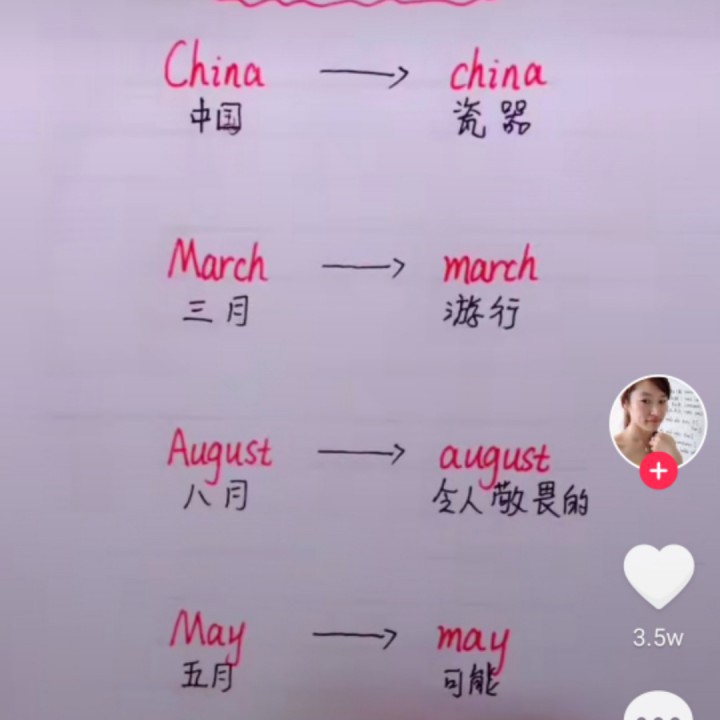 China → china
中国 瓷器
March → march
三月 游行
August → august
八月 令人敬畏的
May → may
五月 可能
3.5w